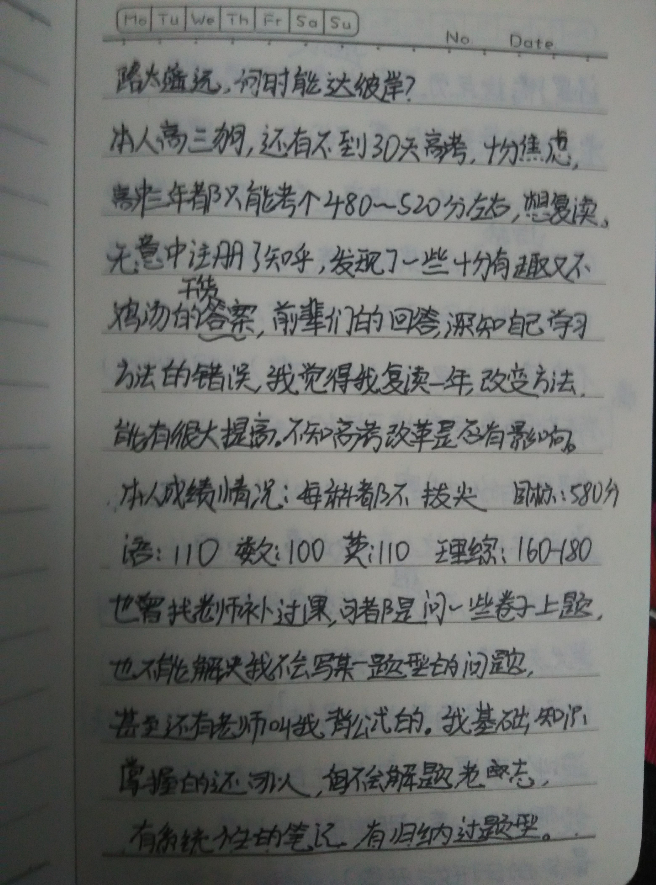 Mo Tu We Th Fr Sa Su
No Date
路太遥远，何时能达彼岸？
本人高三狗，还有不到30天高考，十分焦虑，
高中三年都只能考个480～520分左右，想复读，
无意中注册了知乎，发现了一些十分有趣又不
干货
鸡汤的答案，前辈们的回答，深知自己学习
方法的错误，我觉得我复读一年，改变方法，
能有很大提高。不知高考改革是否有影响。
本人成绩情况：每科都不拔尖 目标：580分
语：110 数：100 英：110 理综：160-180
也曾找老师补过课，可都是问一些卷子上题，
也不能解决我不会写某一题型的问题，
甚至还有老师叫我背公式的。我基础知识
掌握的还可以，但不会解题
有系统性的笔记，有归纳过题型。